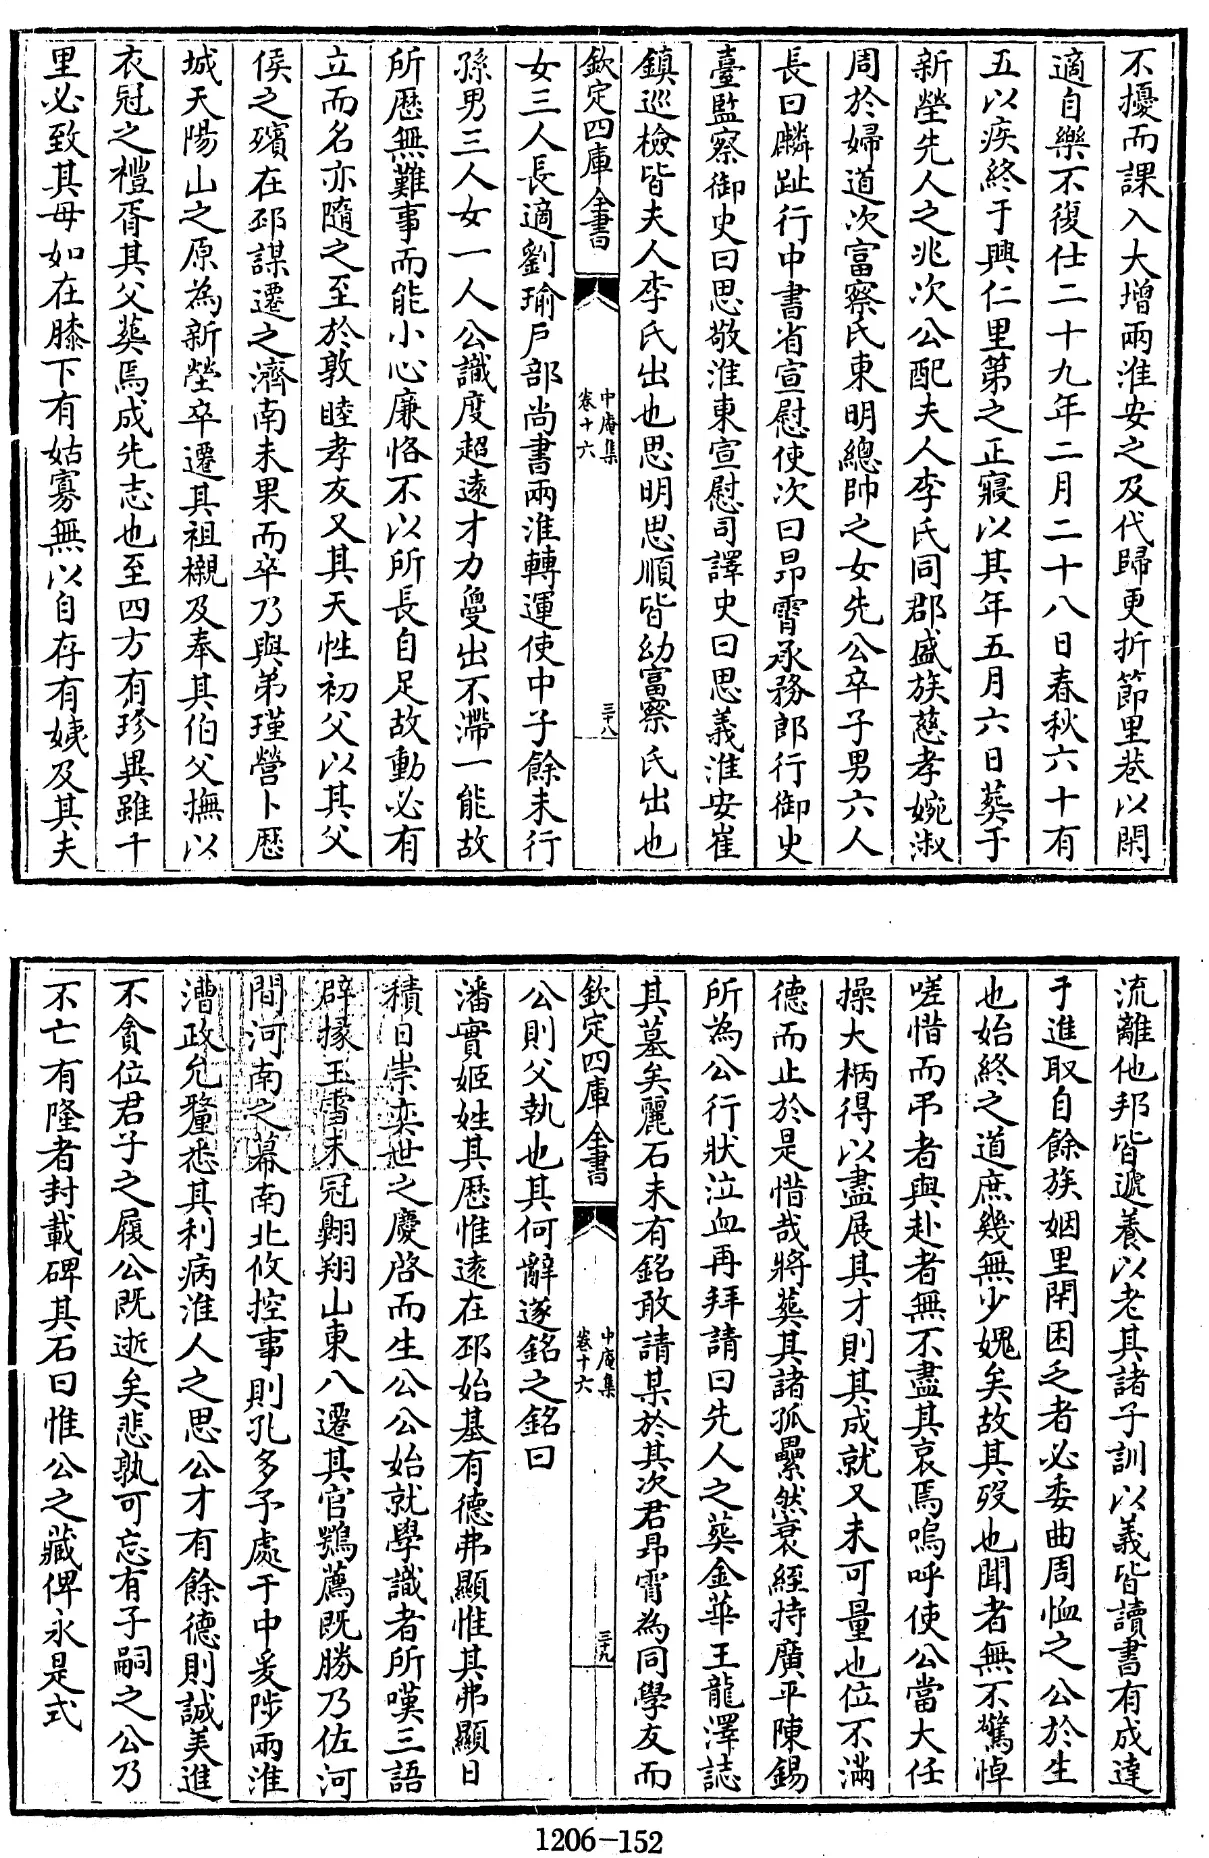 不擾而課入大增兩淮安之及代歸更折節里巷以閑
適自樂不復仕二十九年二月二十八日春秋六十有
五以疾終于興仁里第之正寢以其年五月六日葬于
新塋先人之兆次公配夫人李氏同郡盛族慈孝婉淑
周於婦道次富察氏東明總帥之女先公卒子男六人
長曰麟趾行中書省宣慰使次曰昂霄承務郎行御史
臺監察御史曰思敬淮東宣慰司譯史曰思義淮安崔
鎮巡檢皆夫人李氏出也思明思順皆幼富察氏出也
欽定四庫全書
中庵集
卷十六
三十八
女三人長適劉瑜戶部尚書兩淮轉運使中子餘未行
孫男三人女一人公識度超遠才力敻出不滯一能故
所歷無難事而能小心廉恪不以所長自足故動必有
立而名亦隨之至於敦睦孝友又其天性初父以其父
侯之殯在邳謀遷之濟南未果而卒乃與弟瑾營卜歷
城天陽山之原為新塋卒遷其祖櫬及奉其伯父撫以
衣冠之禮胥其父葬焉成先志也至四方有珍異雖千
里必致其母如在膝下有姑寡無以自存有姨及其夫
流離他邦皆遞養以老其諸子訓以義皆讀書有成達
于進取自餘族姻里閈困乏者必委曲周恤之公於生
也始終之道庶幾無少媿矣故其歿也聞者無不驚悼
嗟惜而弔者與赴者無不盡其哀焉嗚呼使公當大任
操大柄得以盡展其才則其成就又未可量也位不滿
德而止於是惜哉將葬其諸孤纍然衰絰持廣平陳錫
所為公行狀泣血再拜請曰先人之葬金華王龍澤誌
其墓矣麗石未有銘敢請某於其次君昂霄為同學友而
欽定四庫全書
中庵集
卷十六
三十九
公則父執也其何辭遂銘之銘曰
潘實姬姓其歷惟遠在邳始基有德弗顯惟其弗顯日
積日崇奕世之慶啓而生公公始就學識者所嘆三語
辟掾玉雪未冠翺翔山東八遷其官鶚薦既勝乃佐河
間河南之幕南北攸控事則孔多予處于中爰陟兩淮
漕政允釐悉其利病淮人之思公才有餘德則誠美進
不貪位君子之履公既逝矣悲孰可忘有子嗣之公乃
不亡有隆者封載碑其石曰惟公之藏俾永是式
1206-152